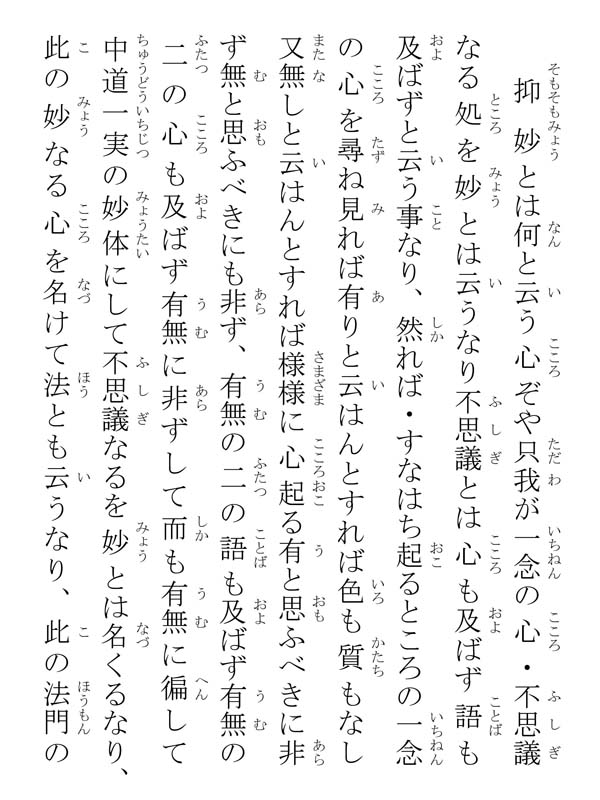 抑妙とは何と云う心ぞや只我が一念の心・不思議
なる処を妙とは云うなり不思議とは心も及ばず語も
及ばずと云う事なり、然れば・すなはち起るところの一念
の心を尋ね見れば有りと云はんとすれば色も質もなし
又無しと云はんとすれば様様に心起る有と思ふべきに非
ず無と思ふべきにも非ず、有無の二の語も及ばず有無の
二の心も及ばず有無に非ずして而も有無に徧して
中道一実の妙体にして不思議なるを妙とは名くるなり、
此の妙なる心を名けて法とも云うなり、此の法門の